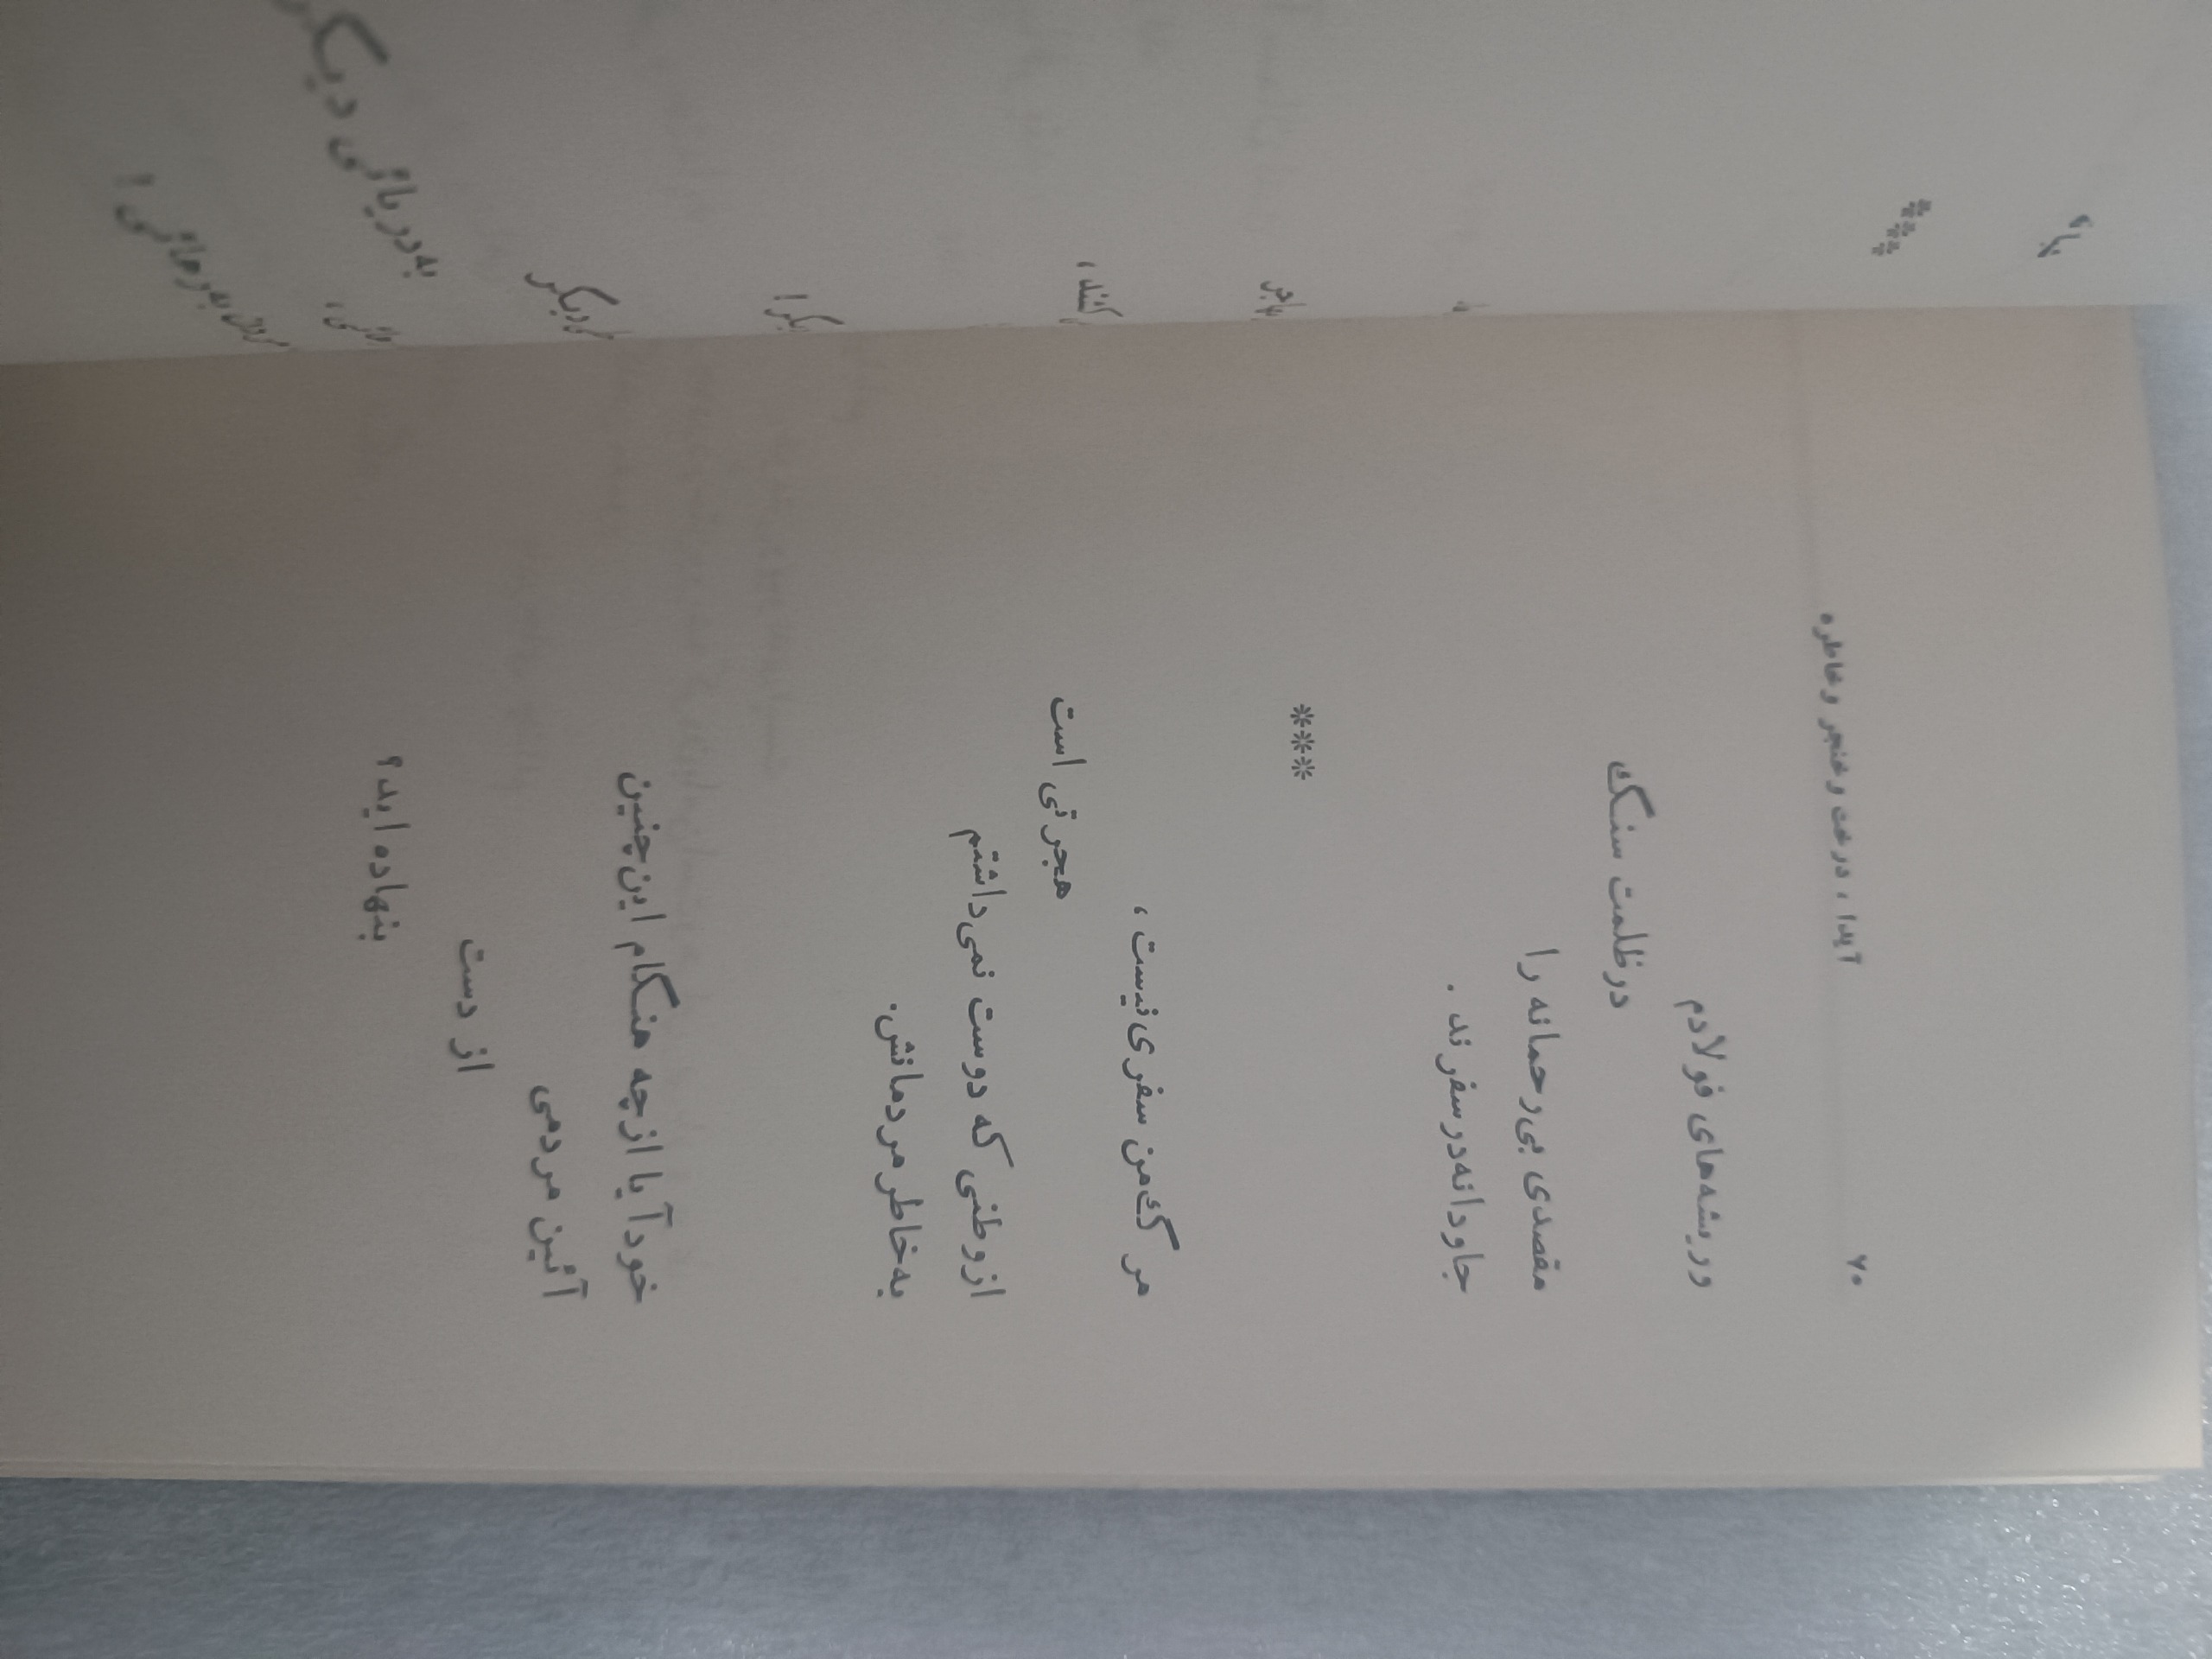 ۶۰
آیدا، درخت و خنجر و خاطره
و ریشه‌های فولادم
در ظلمت سنگ
مقصدی بی‌رحمانه را
جاودانه در سفرند .
***
مرگ من سفری نیست،
هجرتی است
از وطنی که دوست نمی‌داشتم
به خاطر مردمانش.
خود آیا از چه هنگام این چنین
آئین مردمی
از دست
بنهاده‌اید؟
***
به‌دریائی دیگر